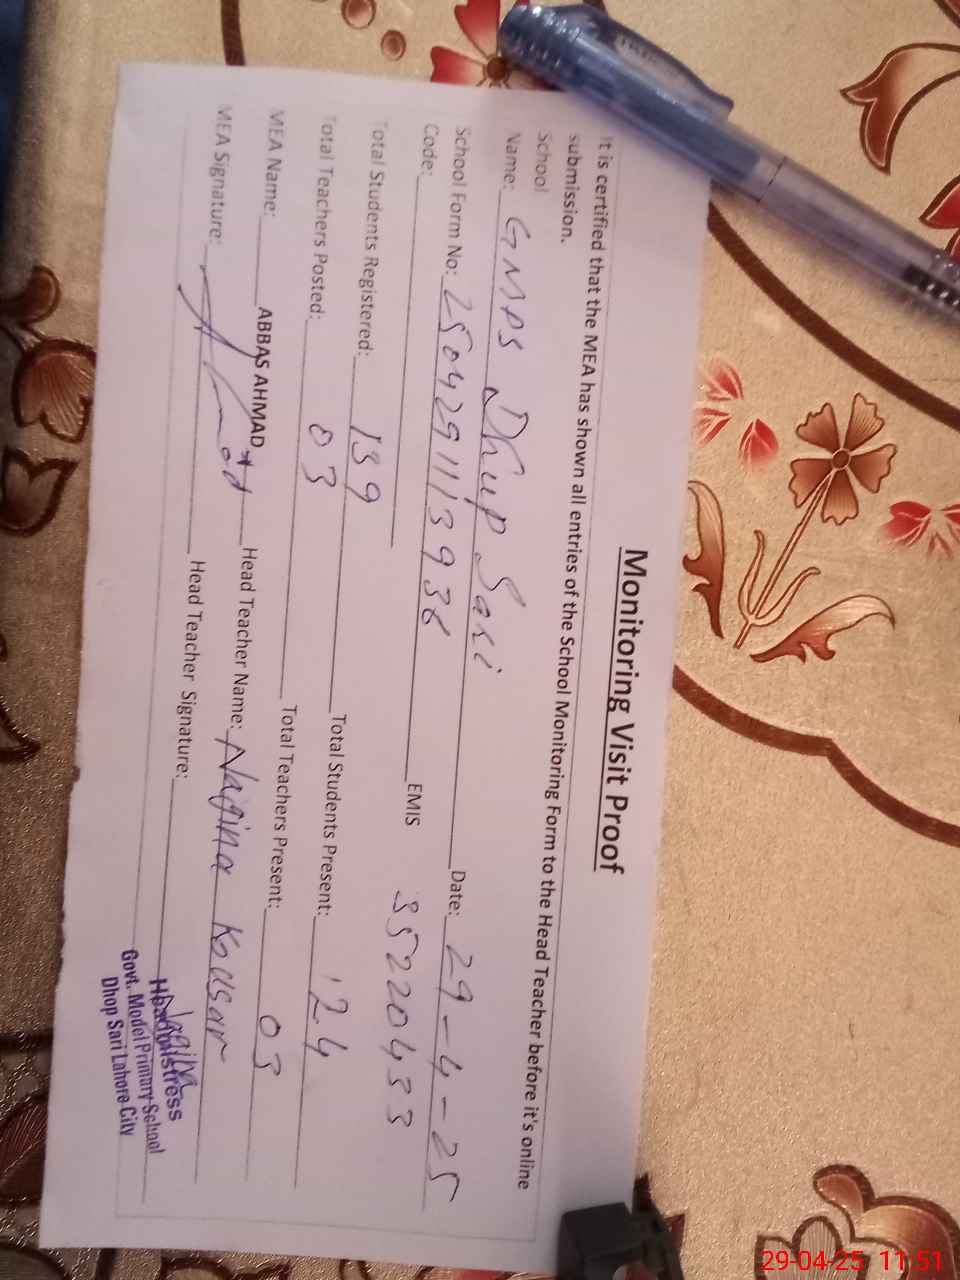 Monitoring Visit Proof
It is certified that the MEA has shown all entries of the School Monitoring Form to the Head Teacher before it's online
submission.
School
Name: GMPS Dhup Sari
School Form No: 25042911139936 Date: 29-4-25
Code: EMIS 35220433
Total Students Registered: 139 Total Students Present: 124
Total Teachers Posted: 03 Total Teachers Present: 03
MEA Name: ABBAS AHMAD Head Teacher Name: Nagina Kousar
MEA Signature: Head Teacher Signature:
Headmistress
Govt. Model Primary School
Dhop Sari Lahore City
29-04-25 11:51